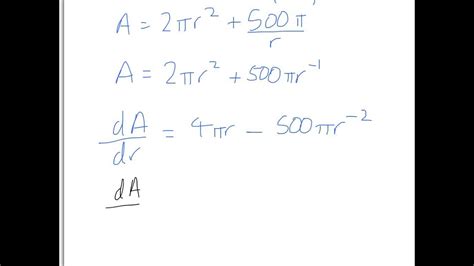 A = 2πr² + 500π/r
A = 2πr² + 500πr⁻¹
dA/dr = 4πr − 500πr⁻²
dA